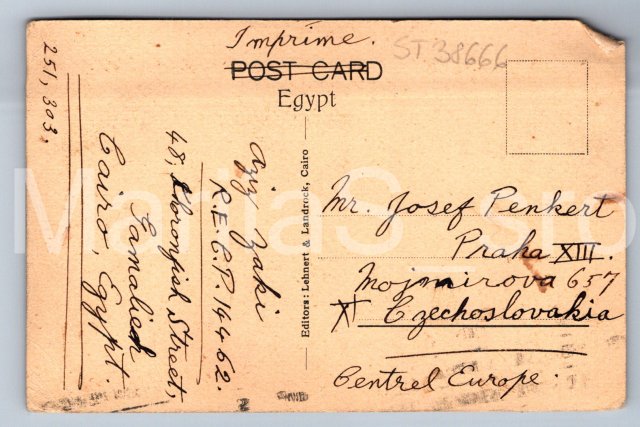 Imprime.
ST 38666
POST CARD
Egypt
251, 303,
Aziz Zaki
R.E.C.P. 14462.
48, Khoronfish Street,
Gamalieh
Cairo, Egypt.
Editors: Lehnert & Landrock, Cairo
Mr. Josef Penkert
Praha XIII.
Mojmirova 657
Czechoslovakia
Centrel Europe.